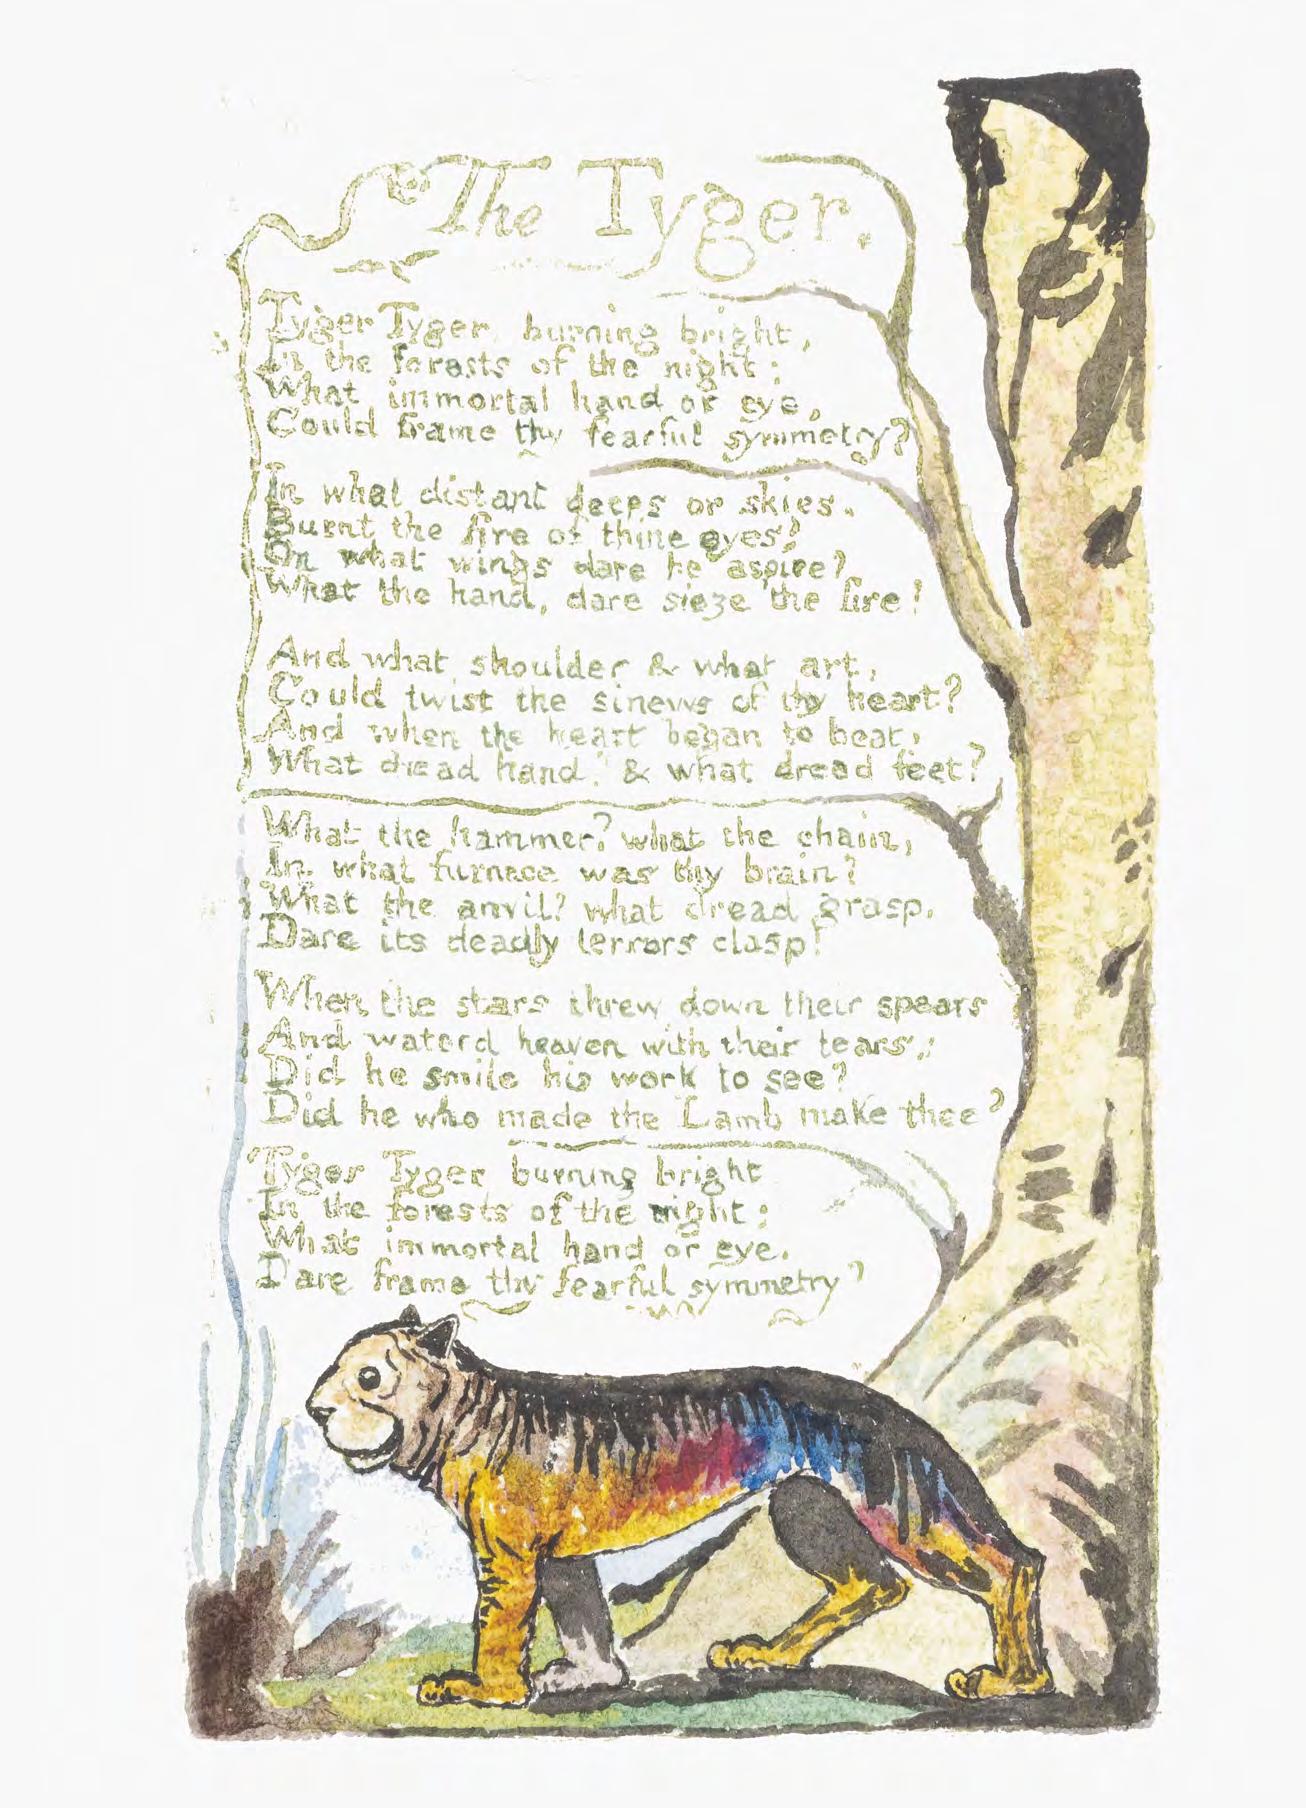 The Tyger.
Tyger Tyger, burning bright,
In the forests of the night;
What immortal hand or eye,
Could frame thy fearful symmetry?
In what distant deeps or skies.
Burnt the fire of thine eyes?
On what wings dare he aspire?
What the hand, dare sieze the fire?
And what shoulder & what art,
Could twist the sinews of thy heart?
And when thy heart began to beat,
What dread hand? & what dread feet?
What the hammer? what the chain,
In what furnace was thy brain?
What the anvil? what dread grasp,
Dare its deadly terrors clasp!
When the stars threw down their spears
And waterd heaven with their tears:
Did he smile his work to see?
Did he who made the Lamb make thee?
Tyger Tyger burning bright
In the forests of the night:
What immortal hand or eye.
Dare frame thy fearful symmetry?